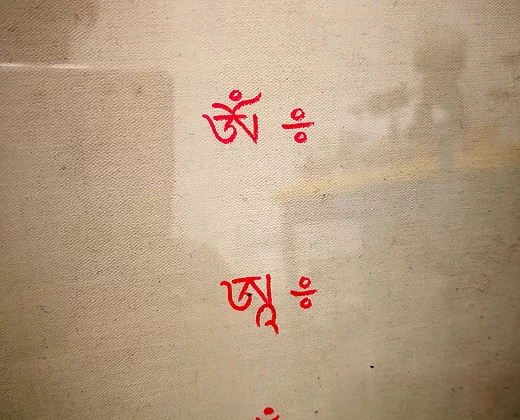 ཨོཾ༔
ཨཱ༔